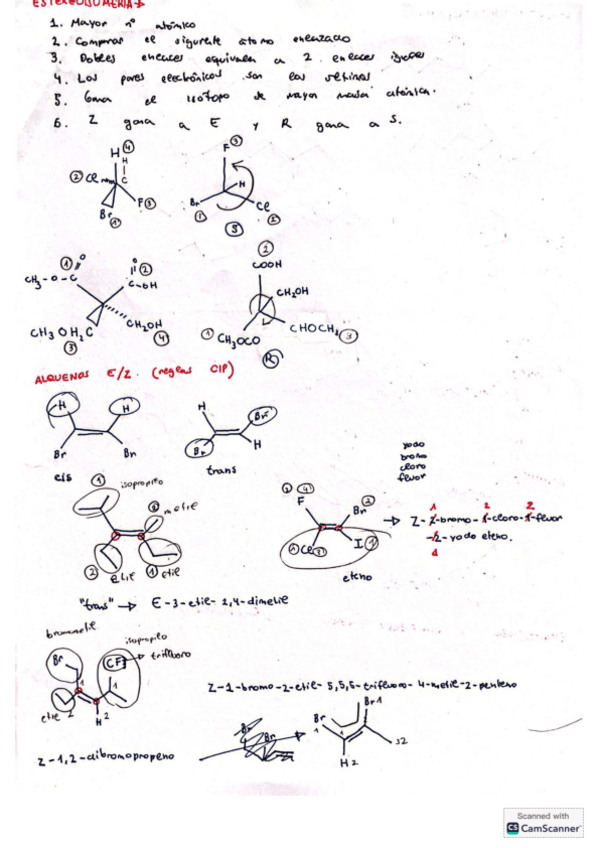 ESTEREOISOMERIA→
1. Mayor nº atómico
2. Comparas el siguiente átomo enlazado
3. Dobles enlaces equivalen a 2 enlaces
4. Los pares electrónicos son los
5. Gana el isótopo de mayor masa atómica.
6. Z gana a E y R gana a S.
H 4
H
2 Cl C F 3
Br 1
F 3
H
Br 1 Cl 2
S
1 O O 2
CH3-O-C C-OH
CH3OH2C 3 CH2OH 4
2
COOH
CH2OH
1 CH3OCO CHOCH3 3
R
ALQUENOS E/Z. (reglas CIP)
H H
Br Br
cis
H Br
Br H
trans
yodo
bromo
cloro
fluor
1 isopropilo
2 metil
2 etil 1 etil
F Br 2
Cl I 1
eteno
1 2 2
→ Z-2-bromo-1-cloro-1-fluor
-2-yodo eteno.
1
"trans" → E-3-etil-2,4-dimetil
bromometil
isopropilo
Br CF3 → trifluoro
1 1
etil 2 H 2
Z-1-bromo-2-etil-5,5,5-trifluoro-4-metil-2-penteno
Z-1,2-dibromopropeno
Br Br
Br Br 1
1
H 2
Scanned with
CS CamScanner